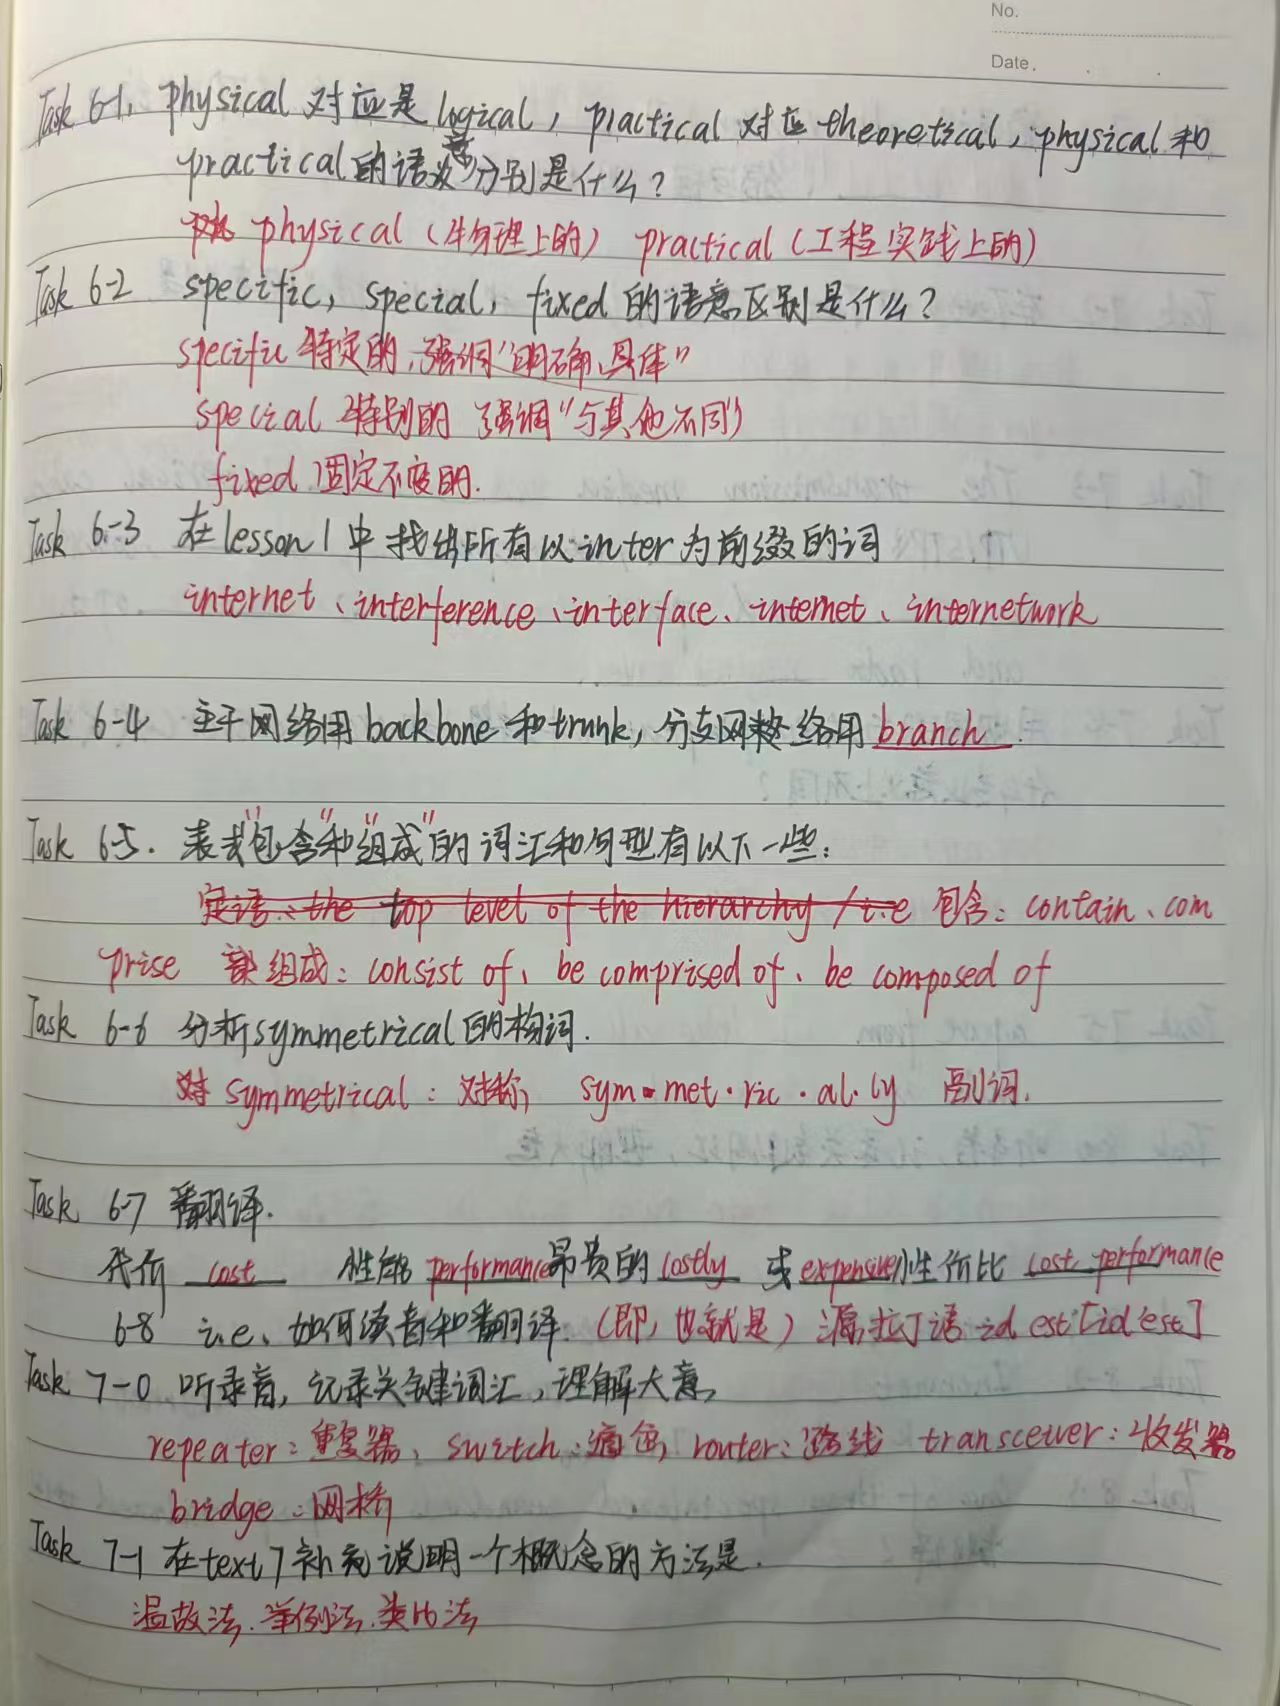 No.
Date.
Task 6-1. physical 对应是 logical, practical 对应 theoretical, physical 和
practical 的语意分别是什么?
physical (物理上的) practical (工程实践上的)
Task 6-2 specific, special, fixed 的语意区别是什么?
specific 特定的, 强调"明确、具体"
special 特别的 强调"与其他不同"
fixed 固定不变的.
Task 6-3 在 lesson 1 中找出所有以 inter 为前缀的词
internet、interference、interface、internet、internetwork
Task 6-4 主干网络用 backbone 和 trunk, 分支网络用 branch.
Task 6-5. 表式"包含"和"组成"的词汇和句型有以下一些:
定语: the top level of the hierarchy / i.e 包含: contain、com
prise 组成: consist of、be comprised of、be composed of
Task 6-6 分析 symmetrical 的构词.
symmetrical: 对称, sym·met·ric·al·ly 副词.
Task 6-7 翻译.
代价 cost 性能 performance 昂贵的 costly 或 expensive 性价比 cost performance
6-8 i.e、如何读音和翻译. (即, 也就是) 源拉丁语 id est [id'est]
Task 7-0 听录音, 记录关键词汇, 理解大意,
repeater: 重复器、switch: router: 路线 transceiver: 收发器
bridge: 网桥
Task 7-1 在 text 7 补充说明一个概念的方法是.
温故法. 举例法. 类比法